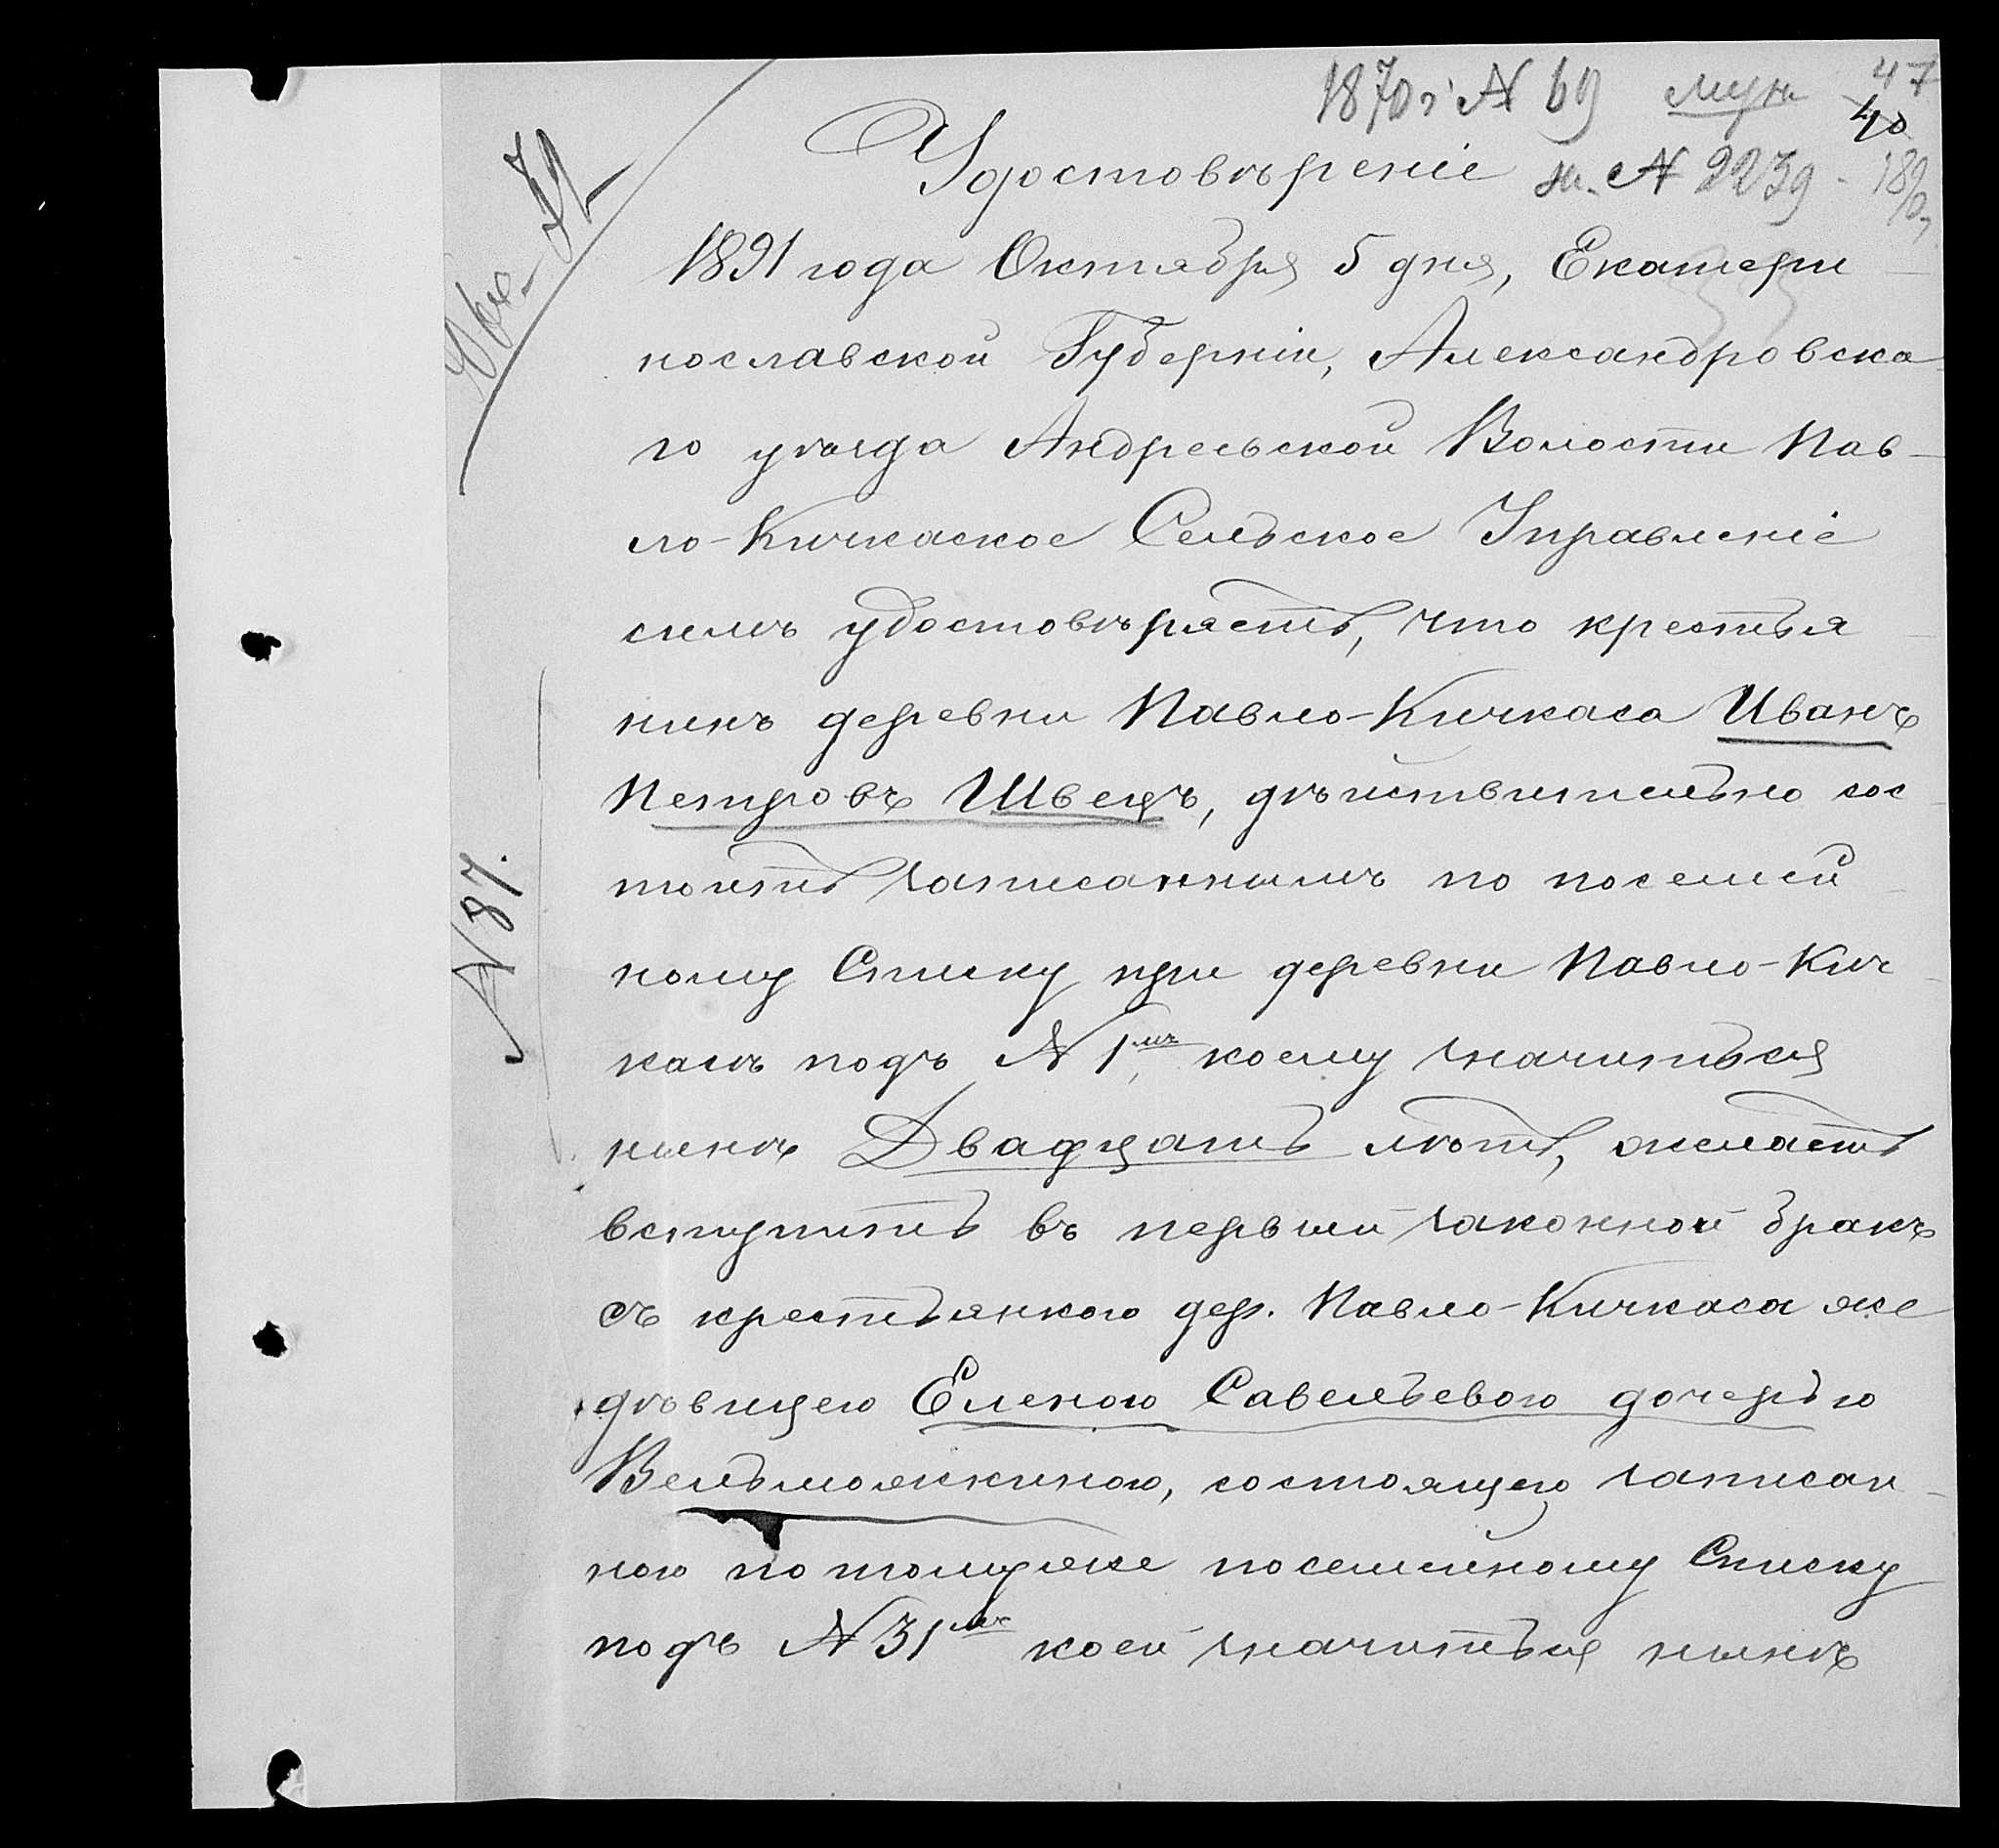 1870 г. N 69 муж 47
40
Удостовѣреніе ж. N 2239 -
1891 года Октября 5 дня, Екатери
нославской Губерніи, Александровска
го уѣзда Андреевской Волости Пав-
ло-Кичкаское Сельское Управленіе
симъ удостовѣряетъ, что крестья
нинъ деревни Павло-Кичкаса Иванъ
Петровъ Швецъ, дѣйствительно сос
тоитъ записаннымъ по посемей
ному Списку при деревни Павло-Кич
касъ подъ N 1мъ, коему значиться
нынѣ Двадцать лѣтъ, желаетъ
вступить въ первый законной бракъ
съ крестьянкою дер. Павло-Кичкаса же
дѣвицею Еленою Савельевою дочерью
Вельможкиною, состоящею записан-
ною по томуже посемейному Списку
подъ N 31мъ коей значиться нынѣ
N 87.